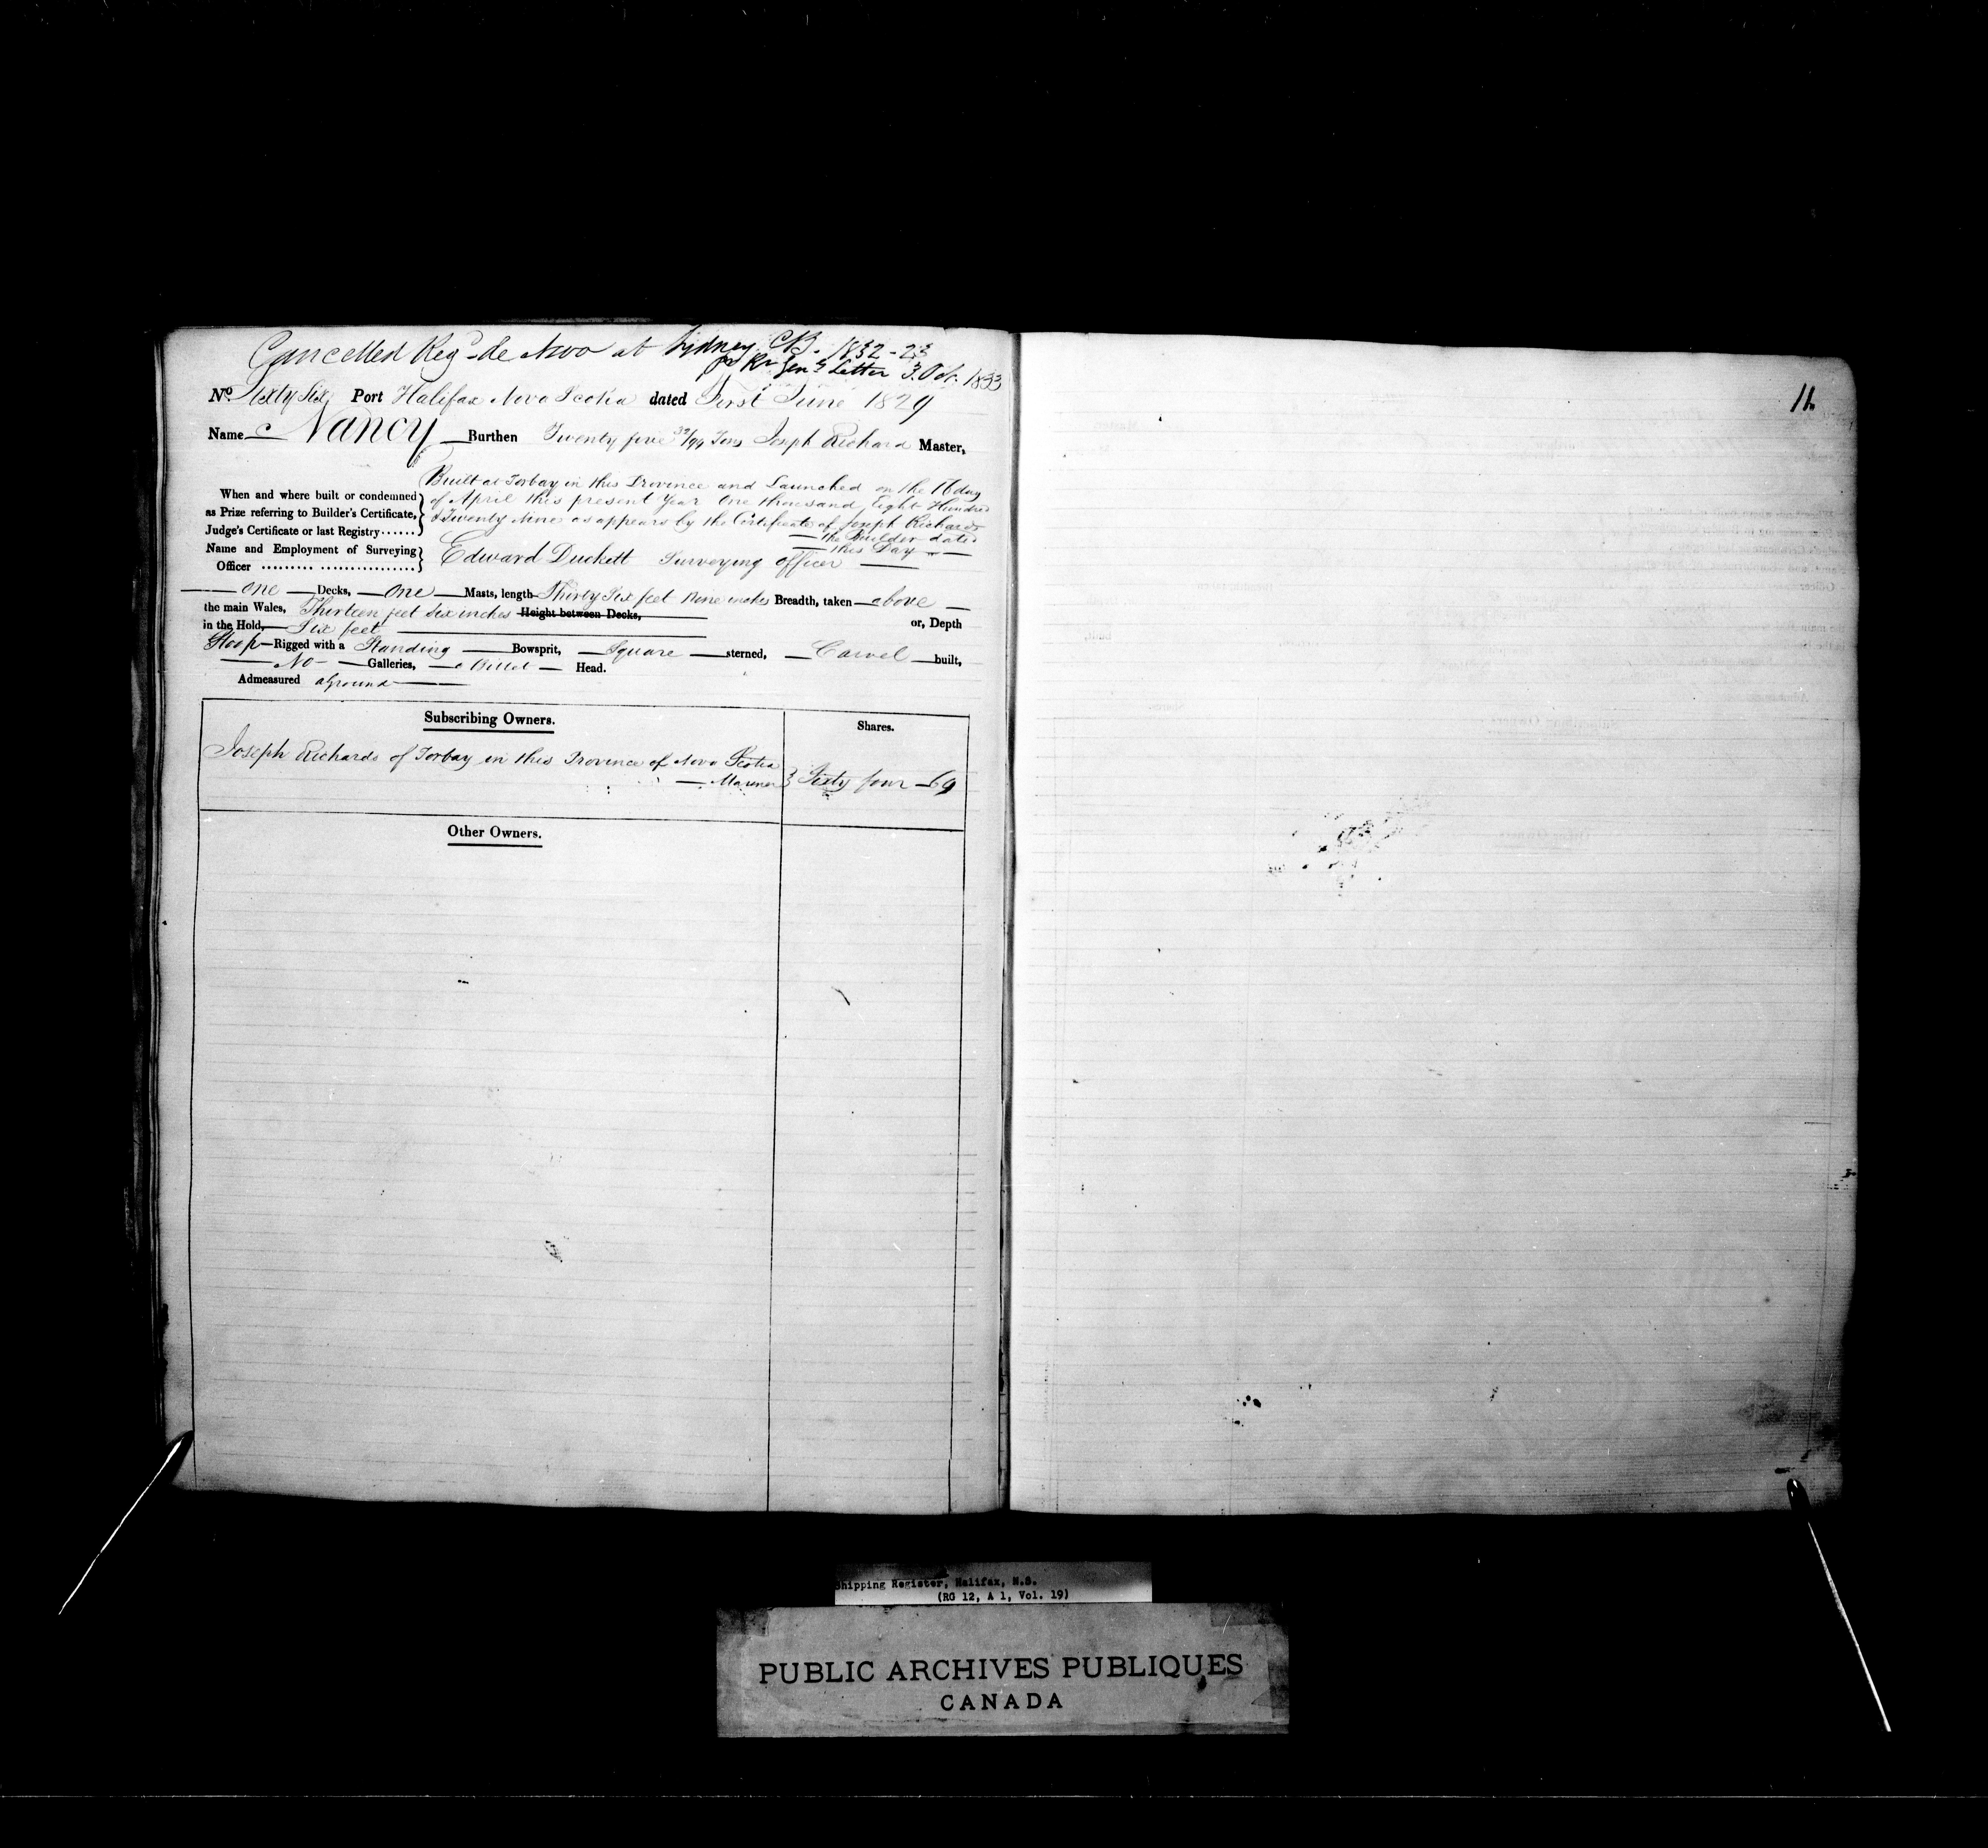 Cancelled Regd de Novo at Sydney CB. 1832-23
pr Rr Genls Letter 3. Oct. 1833
No. Sixty Six Port Halifax Nova Scotia dated First June 1829
Name Nancy Burthen Twenty five 32/94 Tons Joseph Richard Master,
Built at Torbay in this Province and Launched on the day
When and where built or condemned of April this present Year One thousand Eight Hundred
as Prize referring to Builder's Certificate, & Twenty Nine as appears by the Certificate of Joseph Richards
Judge's Certificate or last Registry...... the Builder dated
this Day
Name and Employment of Surveying
Officer ......... ................ Edward Duckett Surveying officer
one Decks, one Masts, length Thirty Six feet Nine inches Breadth, taken above
the main Wales, Thirteen feet Six inches Height between Decks,
in the Hold, Six feet or, Depth
Sloop Rigged with a Standing Bowsprit, Square sterned, Carvel built,
No Galleries, a Billet Head.
Admeasured aGround
Subscribing Owners. Shares.
Joseph Richards of Torbay in this Province of Nova Scotia
Mariner Sixty four 64
Other Owners.
11.
Shipping Register, Halifax, N.S.
(RG 12, A 1, Vol. 19)
PUBLIC ARCHIVES PUBLIQUES
CANADA